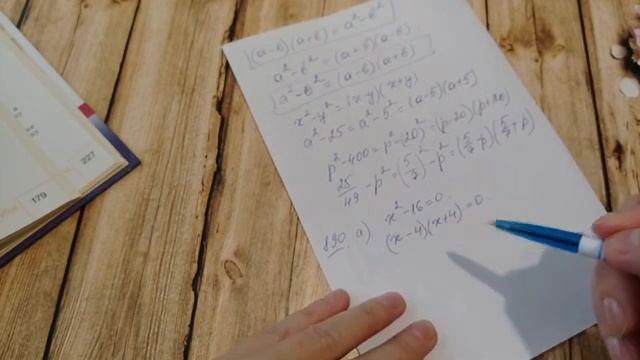 (a-b)(a+b) = a²-b²
a²-b² = (a+b)(a-b)
a²-b² = (a-b)(a+b)
x²-y² = (x-y)(x+y)
a²-25 = a²-5² = (a-5)(a+5)
p²-400 = p²-(20)² = (p-20)(p+20)
25/49 - p² = (5/7)² - p² = (5/7 - p)(5/7 + p)
890. а) x²-16=0.
(x-4)(x+4)=0
179
227